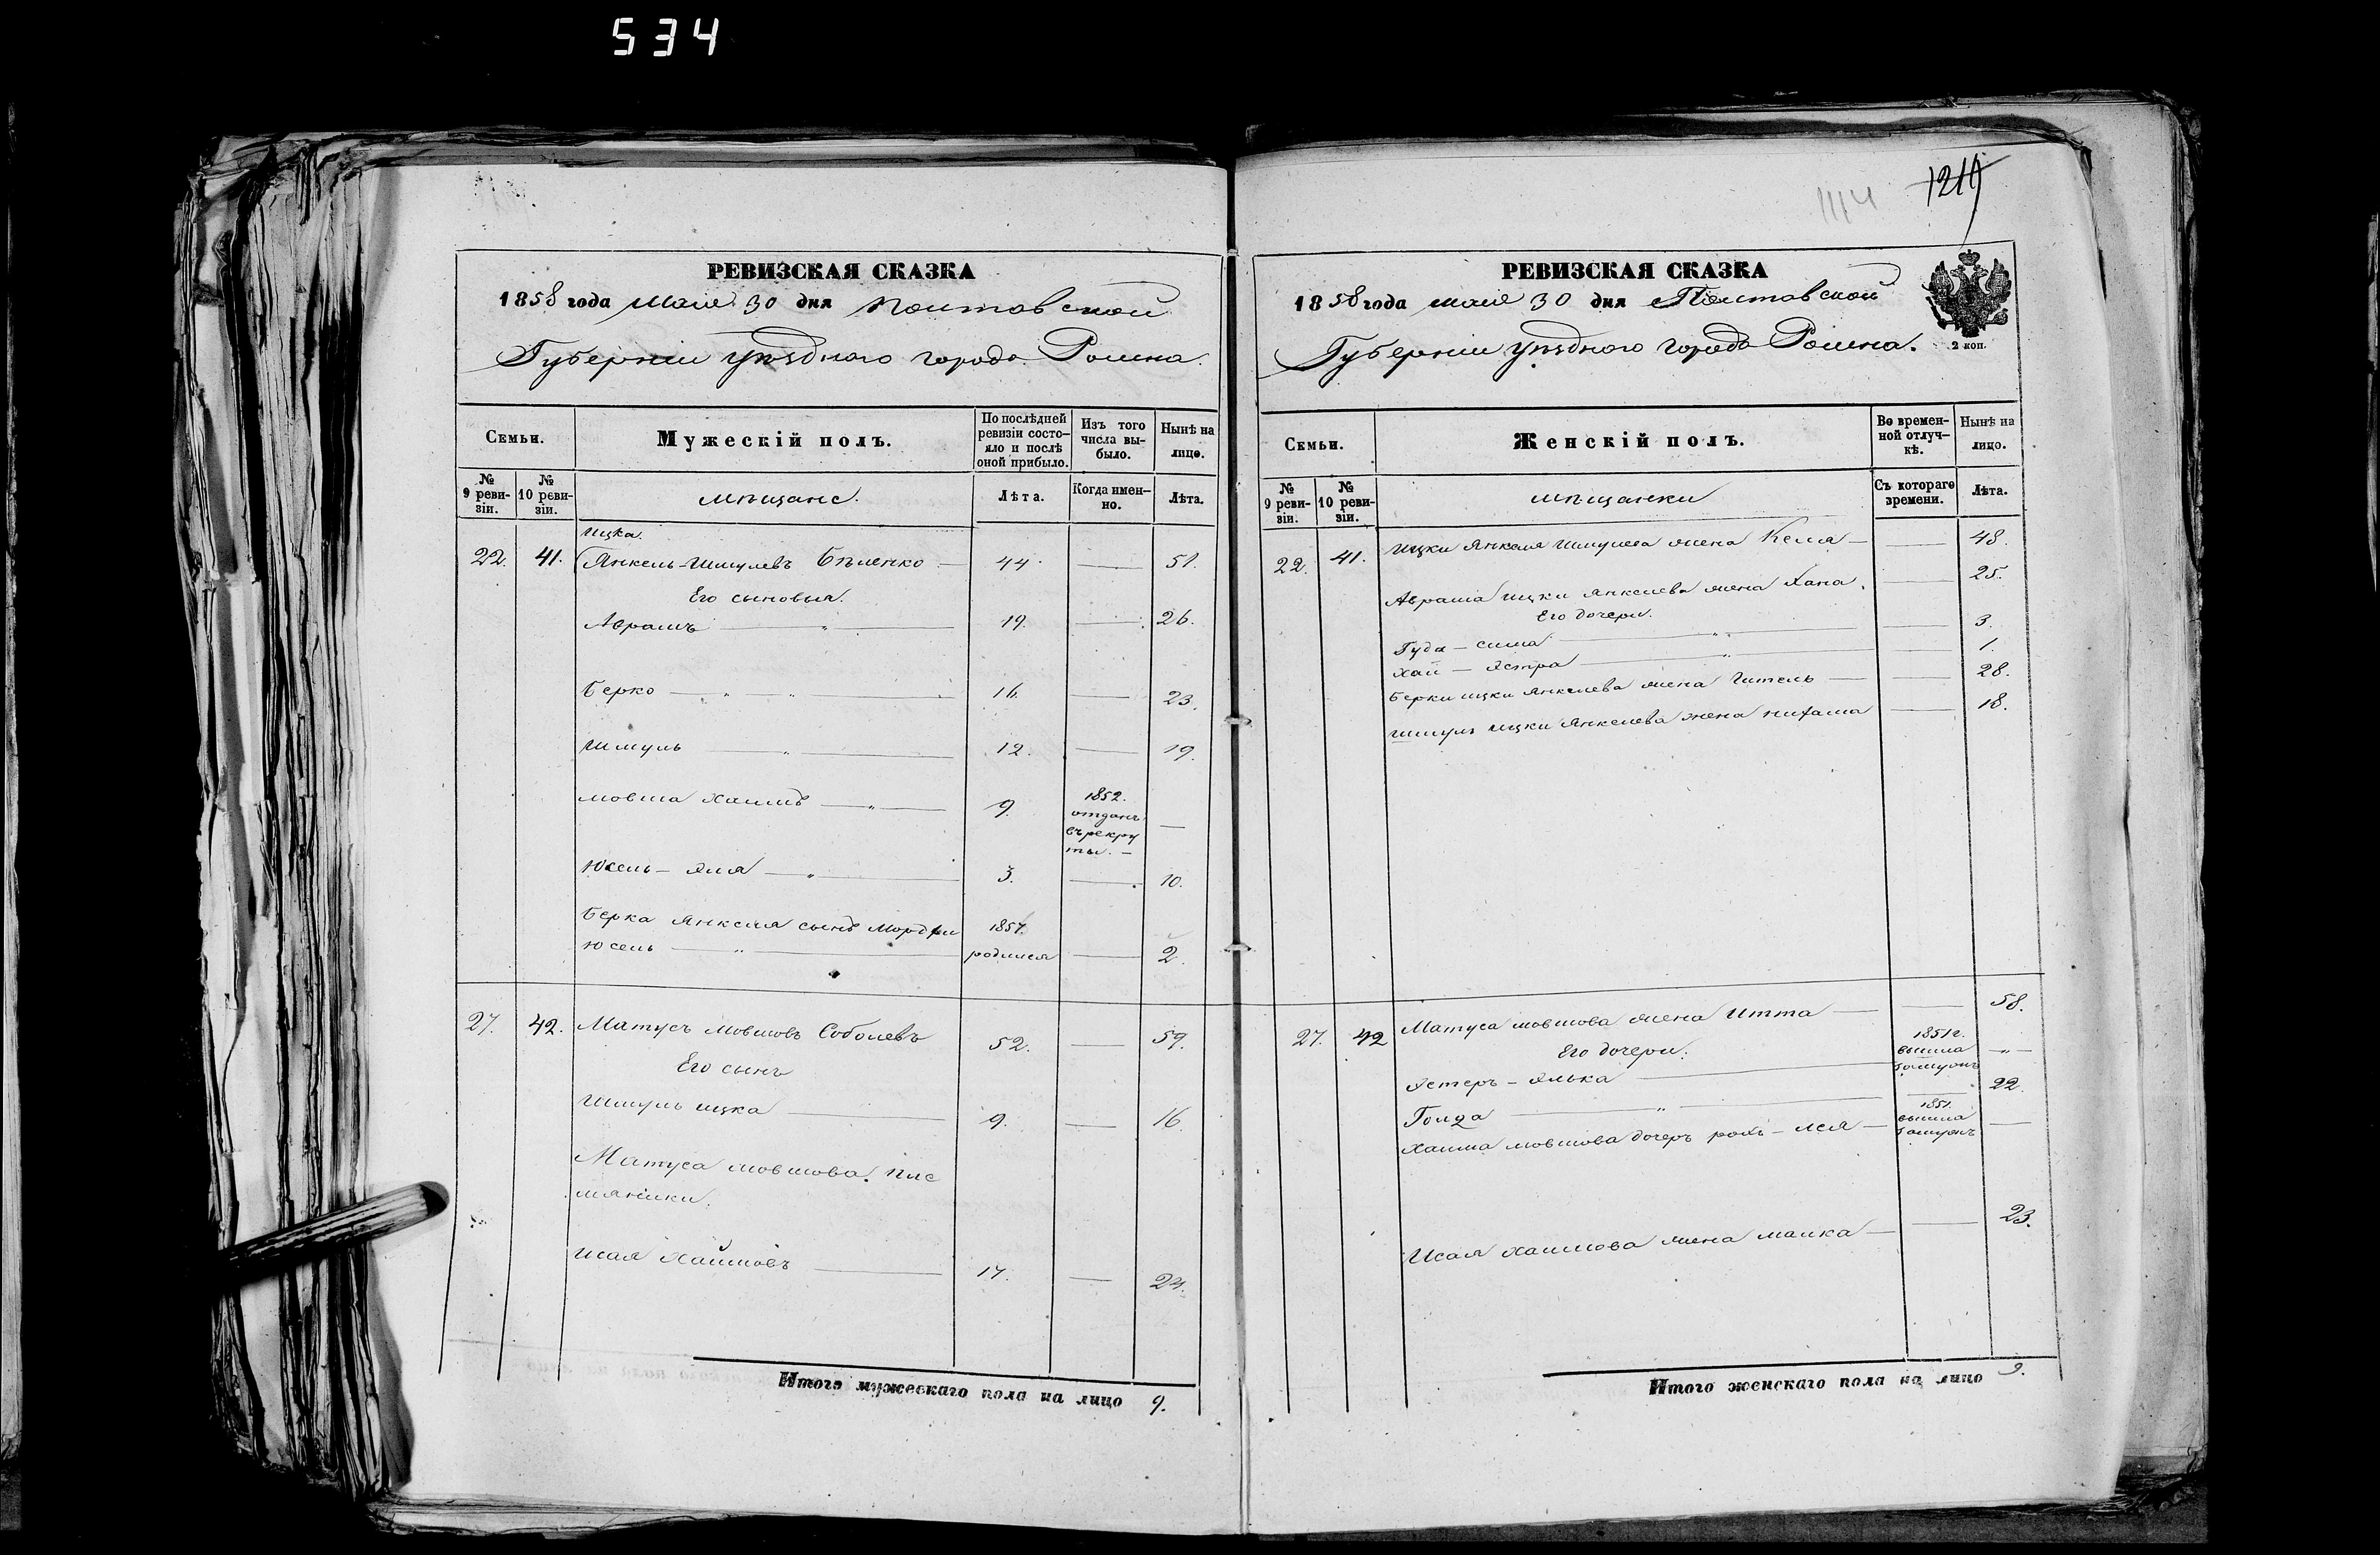 534
1219
1114
РЕВИЗСКАЯ СКАЗКА
1858 года Маія 30 дня Полтавской
Губерніи уѣзднаго города Ромна.
Семьи.
Мужескій полъ.
По послѣдней ревизіи состо-
яло и послѣ оной прибыло.
Изъ того числа вы-
было.
Нынѣ на лице.
№ 9 реви-
зіи.
№ 10 реви-
зіи.
мѣщане.
Лѣта.
Когда имен-
но.
Лѣта.
Ицка.
22. 41. Янкель-Шмулевъ Бѣленко — 44. — 51.
Его сыновья.
Аврамъ — „ — 19. — 26.
Берко — „ — „ — 16. — 23.
Шмуль — „ — 12. — 19.
мовша Хаимъ — „ — 9.
1852.
отданъ
въ рекру
ты. —
—
Юсель — — „ — 3. — 10.
Берка Янкеля сынъ
Юсель — „ —
родился — 2.
27. 42. Матусъ мовшовъ Соболевъ 52. — 59.
Его сынъ
Шмуль ицка — 9. — 16.
Матуса мовшова. пле
мянники.
Исая Хаимовъ — 17. — 24.
Итого мужескаго пола на лицо 9.
РЕВИЗСКАЯ СКАЗКА
1858 года маія 30 дня Полтавской
Губерніи уѣзднаго города Ромна.
2 коп.
Семьи.
Женскій полъ.
Во времен-
ной отлуч-
кѣ.
Нынѣ на лицо.
№ 9 реви-
зіи.
№ 10 реви-
зіи.
мѣщанки
Съ котораго времени.
Лѣта.
22. 41. Ицки Янкеля Шмулева жена Кейла — — 48.
Аврама ицки янкелева жена Хана. — 25.
Его дочери.
Гуда — сима — „ — — 3.
Хая — Эстра — „ — — 1.
Берки ицки янкелева жена Гитель — — 28.
Шмуля ицки Янкелева жена — 18.
27. 42 Матуса мовшова жена Итта — — 58.
Его дочери.
Эстеръ — Элька —
1851 г.
вышла
замужъ
— „ —
Голда — „ — — 22.
Хаима мовшова дочеръ — Лея —
1851.
вышла
замужъ
—
Исая Хаимова жена малка — — 23.
Итого женскаго пола на лицо 9.